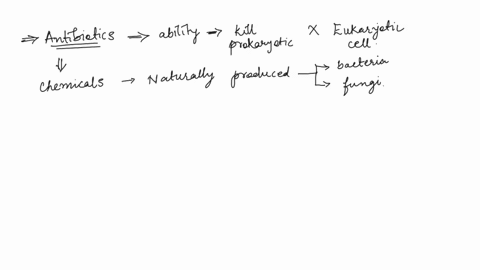 ⇒ Antibiotics → ability → kill prokaryotic X Eukaryotic cell.
⇓
Chemicals → Naturally produced → bacteria
→ fungi.